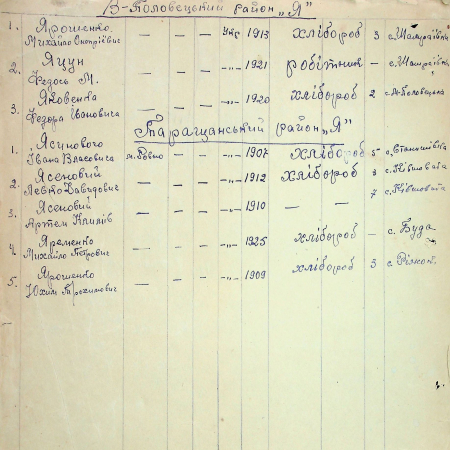 В-Половецький район „Я"
1. Ярошенко Михайло Онопрієвич — — укр 1913 хлібороб 3 с. Шамраївка
2. Яцун Федось М. — — — -„- 1921 робітник — с. Шамраївка
3. Яковенко Федора Івановича — — — -„- 1920 хлібороб 2
Таращанський район „Я"
1. Ясунового Івана Власовича м. Рівно — — -„- 1907 хлібороб 5 с. Станишівка
2. Ясеновий Левко Давидович — — — -„- 1912 хлібороб 3 с. Ківшовата
3. Ясеновий Артем Климів — — — -„- 1910 — — 7 с. Ківшовата
4. Яременко Михайло Петрович — — — -„- 1925 хлібороб — с. Буда
5. Ярошенко Юхим Трохимович — — — -„- 1909 хлібороб 3 с.